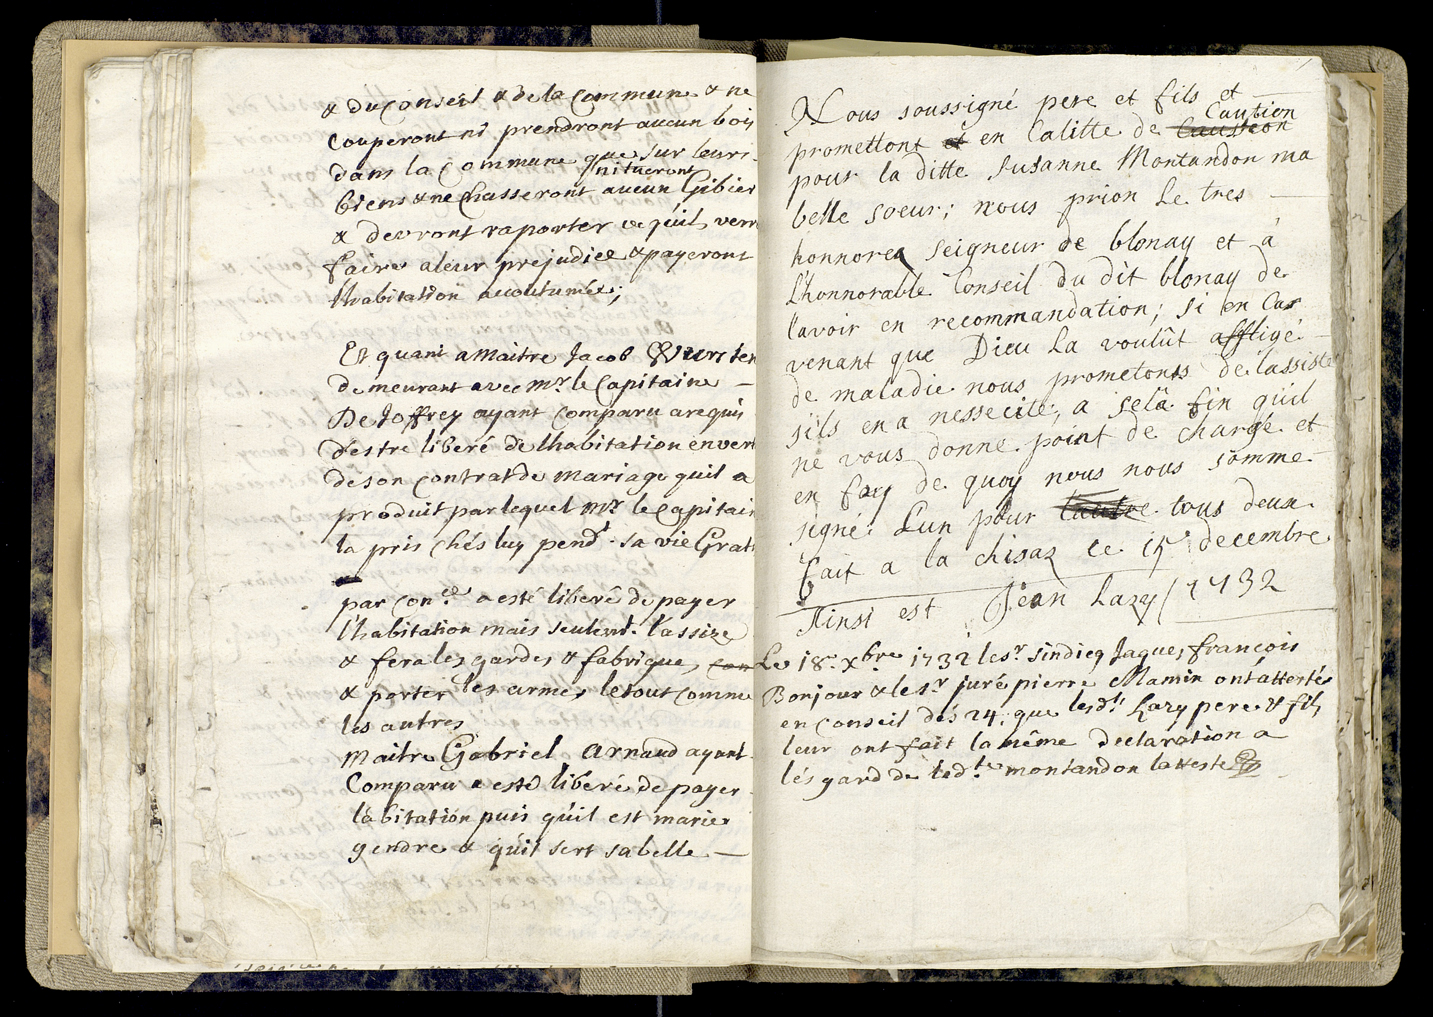 & du Conseil & de la Commune & ne
Couperont ni prendront aucun bois
dans la Commune que sur leurs
ni tueront
biens & ne Chasseront aucun Gibier
& devront raporter ce quil verr
faire aleur prejudice & payeront
lhabitation accoutumée;
Et quant a Maitre Jacob Wursten
demeurant avec mr. le Capitaine —
De Joffrey ayant Comparu arequis
destre liberé de lhabitation en vert
de son contrat de Mariage quil a
produit par lequel mr. le Capitai
la pris chés luy pendt. sa vie Grati
par conce. a esté liberé de payer
l'habitation mais seulemt. l'assize
& fera les gardes & fabriques
& porter les armes le tout comme
les autres
Maitre Gabriel Arnaud ayant
Comparu a esté liberé de payer
labitation puis qu'il est marié
gendre & qu'il sert sa belle —
Nous soussigné pere et fils et
Caution
promettont et en Calitte de Caustion
pour la ditte susanne Montandon ma
belle soeur; nous prion Le tres —
honnorea seigneur de blonay et à
L'honnorable Conseil du dit blonay de
lavoir en recommandation; si en Cas
venant que Dieu La voulût affligé
de maladie nous prometons de lassiste
sils en a nessecité, a selà fin qu'il
ne vous donne point de charge et
en foy de quoy nous nous somme
signé: L'un pour Lautre tous deux
fait a la chisaz ce 15 decembre
Ainsi est Jean Lazy / 1732
Le 18e. Xbre. 1732 le sr. sindicq Jaques françois
Bonjour & le sr. juré pierre Mamin ont attestés
en conseil des 24. que lesdts. Lazy pere & fils
leur ont fait la même declaration a
lés gard de ladte. montandon latteste